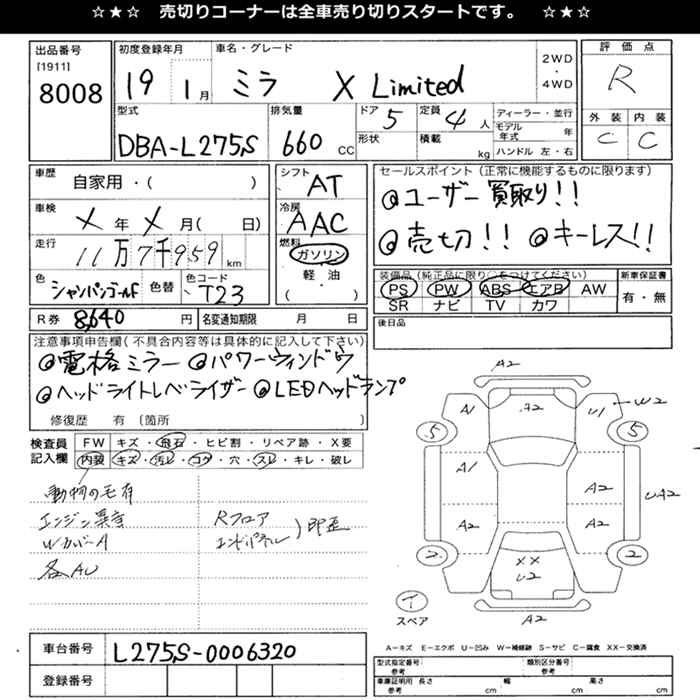 ☆★☆ 売切りコーナーは全車売り切りスタートです。 ☆★☆
出品番号
[1911]
8008
初度登録年月
19 1月
車名・グレード
ミラ X Limited
2WD
・
4WD
評価点
R
型式
DBA-L275S
排気量
660 CC
ドア
5
定員
4人
形状
積載
kg
ディーラー・並行
モデル年式 年
ハンドル 左・右
外装 内装
C C
車歴
自家用・( )
車検
X年X月( 日)
走行
11万7千959km
色
シャンパンゴールド
色替
色コード
T23
シフト
AT
冷房
AAC
燃料
ガソリン
軽・油
( )
セールスポイント(正常に機能するものに限ります)
◎ユーザー買取り!!
◎売切!! ◎キーレス!!
装備品(純正品に限り○をつけてください)
PS PW ABS エアB AW
SR ナビ TV カワ
新車保証書
有・無
R券 8,640円
名変通知期限 月 日
後日品
注意事項申告欄(不具合内容等は具体的に記入して下さい)
◎電格ミラー ◎パワーウィンドウ
◎ヘッドライトレベライザー ◎LEDヘッドランプ
修復歴 有(箇所 )
検査員記入欄
FW キズ・飛石・ヒビ割・リペア跡・X要
内装 キズ・汚レ・コゲ・穴・スレ・キレ・破レ
動物の毛有
エンジン異音
WカバーA
各AU
Rフロア
エンドパネル
)即歪
A2
A1
A2
U1
W2
5
5
A1
A2
UA2
A2
A2
2
2
XX
U2
A2
イ
スペア
A−キズ E−エクボ U−凹み W−補修跡 S−サビ C−腐食 XX−交換済
車台番号
L275S-0006320
登録番号
型式指定番号
参考
類別区分番号
参考
車庫証明用
参考
長さ cm
幅 cm
高さ cm